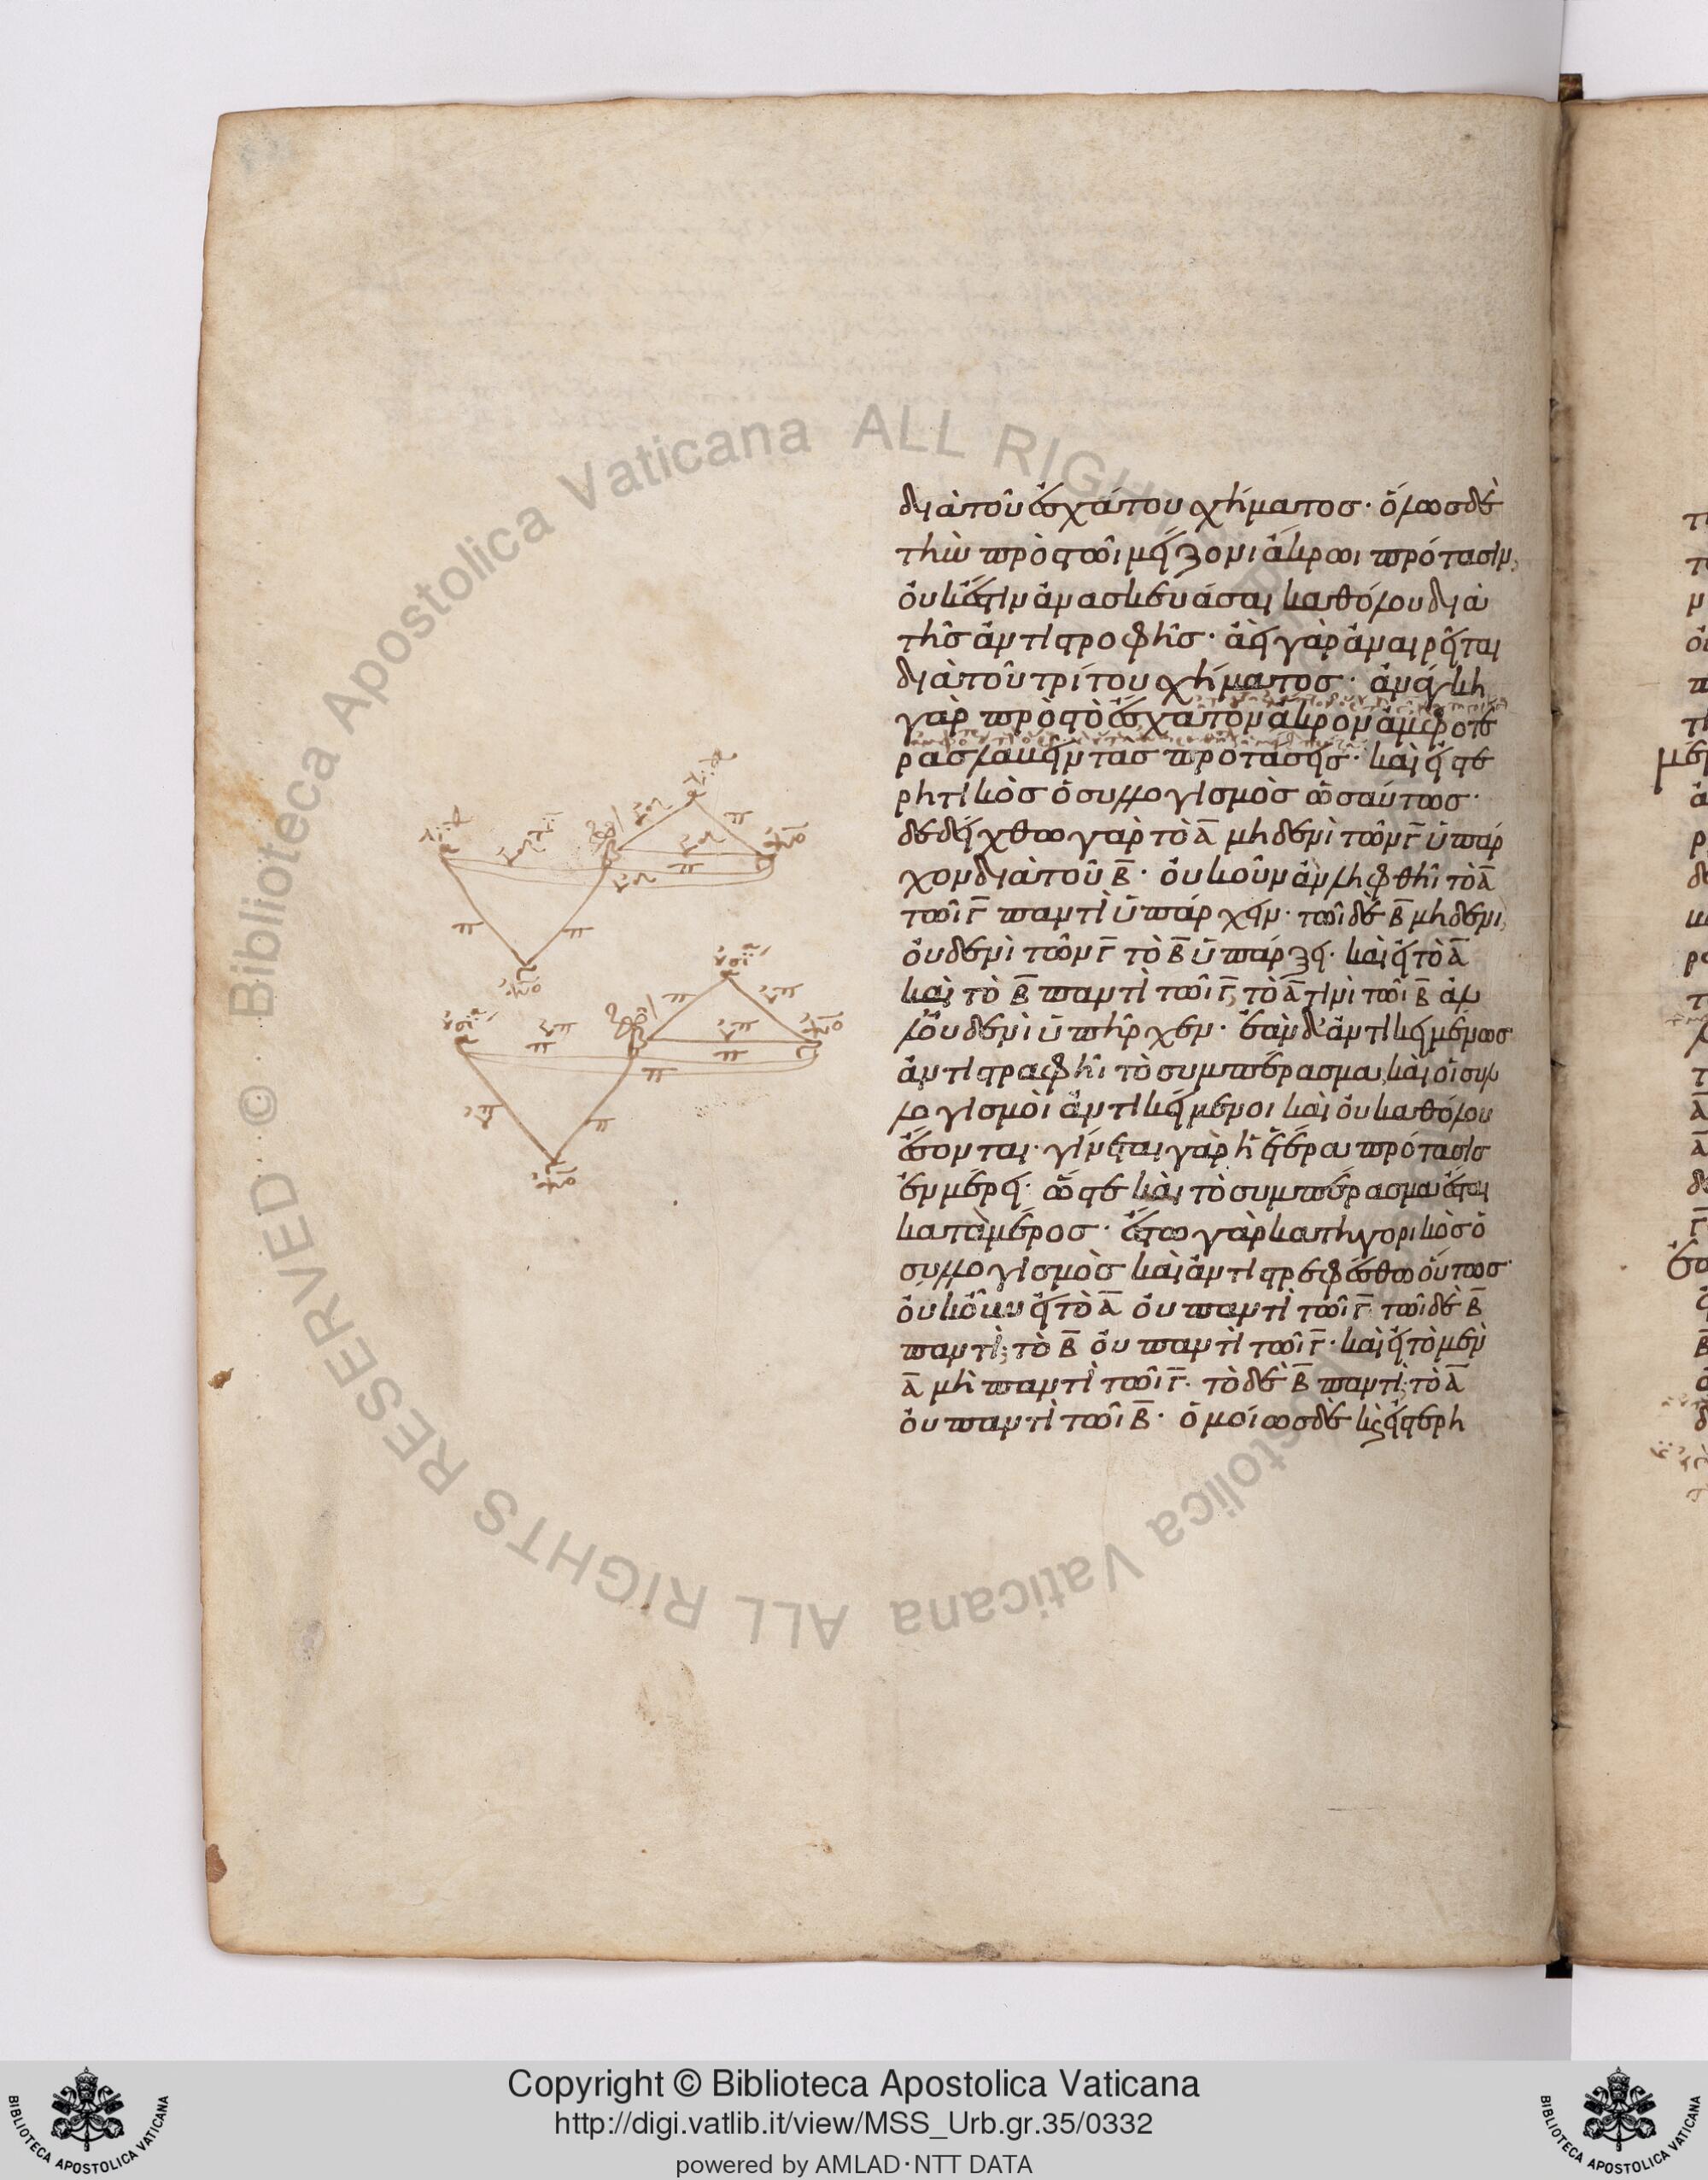 διὰ τοῦ ἐσχάτου σχήματος· ὅλως δὲ
τὴν πρὸς τῶι μείζονι ἄκρωι πρότασιν,
οὐκ ἔστιν ἀνασκευάσαι καθόλου διὰ
τῆς ἀντιστροφῆς· ἀεὶ γὰρ ἀναιρεῖται
διὰ τοῦ τρίτου σχήματος· ἀνάγκη
γὰρ πρὸς τὸ ἔσχατον ἄκρον ἀμφοτέ
ρας λαμβεῖν τὰς προτάσεις· καὶ εἰ στε
ρητικὸς ὁ συλλογισμὸς ὡσαύτως·
δεδείχθω γὰρ τὸ Α̅ μηδενὶ τῶν Γ̅ ὑπάρ
χον διὰ τοῦ Β̅· οὐκοῦν ἂν ληφθῆι τὸ Α̅
τῶι Γ̅ παντὶ ὑπάρχειν· τῶι δὲ Β̅ μηδενὶ,
οὐδενὶ τῶν Γ̅ τὸ Β̅ ὑπάρξει· καὶ εἰ τὸ Α̅
καὶ τὸ Β̅ παντὶ τῶι Γ̅, τὸ Α̅ τινὶ τῶι Β̅ ἀλ
λ' οὐδενὶ ὑπῆρχεν· ἐὰν δ' ἀντικειμένως
ἀντιστραφῆι τὸ συμπέρασμα, καὶ οἱ συλ
λογισμοὶ ἀντικείμενοι καὶ οὐ καθόλου
ἔσονται· γίνεται γὰρ ἡ ἑτέρα πρότασις
ἐν μέρει· ὥστε καὶ τὸ συμπέρασμα ἔσται
κατὰ μέρος· ἔστω γὰρ κατηγορικὸς ὁ
συλλογισμὸς καὶ ἀντιστρεφέσθω οὕτως·
οὐκοῦν εἰ τὸ Α̅ οὐ παντὶ τῶι Γ̅ τῶι δὲ Β̅
παντὶ, τὸ Β̅ οὐ παντὶ τῶι Γ̅· καὶ εἰ τὸ μὲν
Α̅ μὴ παντὶ τῶι Γ̅· τὸ δὲ Β̅ παντὶ, τὸ Α̅
οὐ παντὶ τῶι Β̅· ὁμοίως δὲ κ(αὶ) εἰ στερη
Copyright © Biblioteca Apostolica Vaticana
http://digi.vatlib.it/view/MSS_Urb.gr.35/0332
powered by AMLAD·NTT DATA
BIBLIOTECA APOSTOLICA VATICANA
BIBLIOTECA APOSTOLICA VATICANA